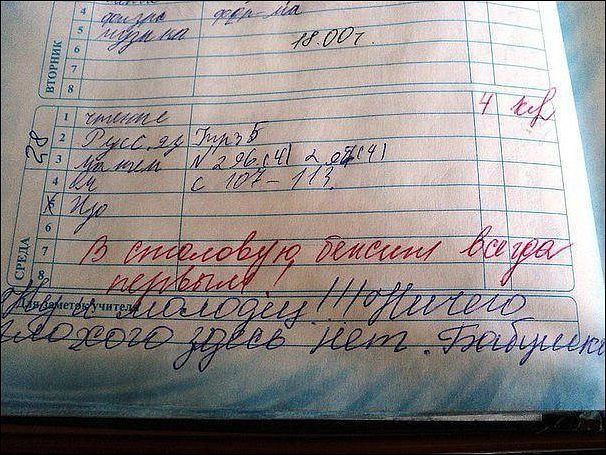 4 физра форма
5 музыка 18.00 г.
6
7
8
ВТОРНИК
28
СРЕДА
1 чтение 4
2 Русс. яз Упр 5
3 Матем N 296(4) 297(4)
4 с 107-113
5 Изо
6
7 В столовую бежит всегда
8 первым!
Для заметок учителя
Ну и молодец!!! Ничего
плохого здесь нет. Бабушка